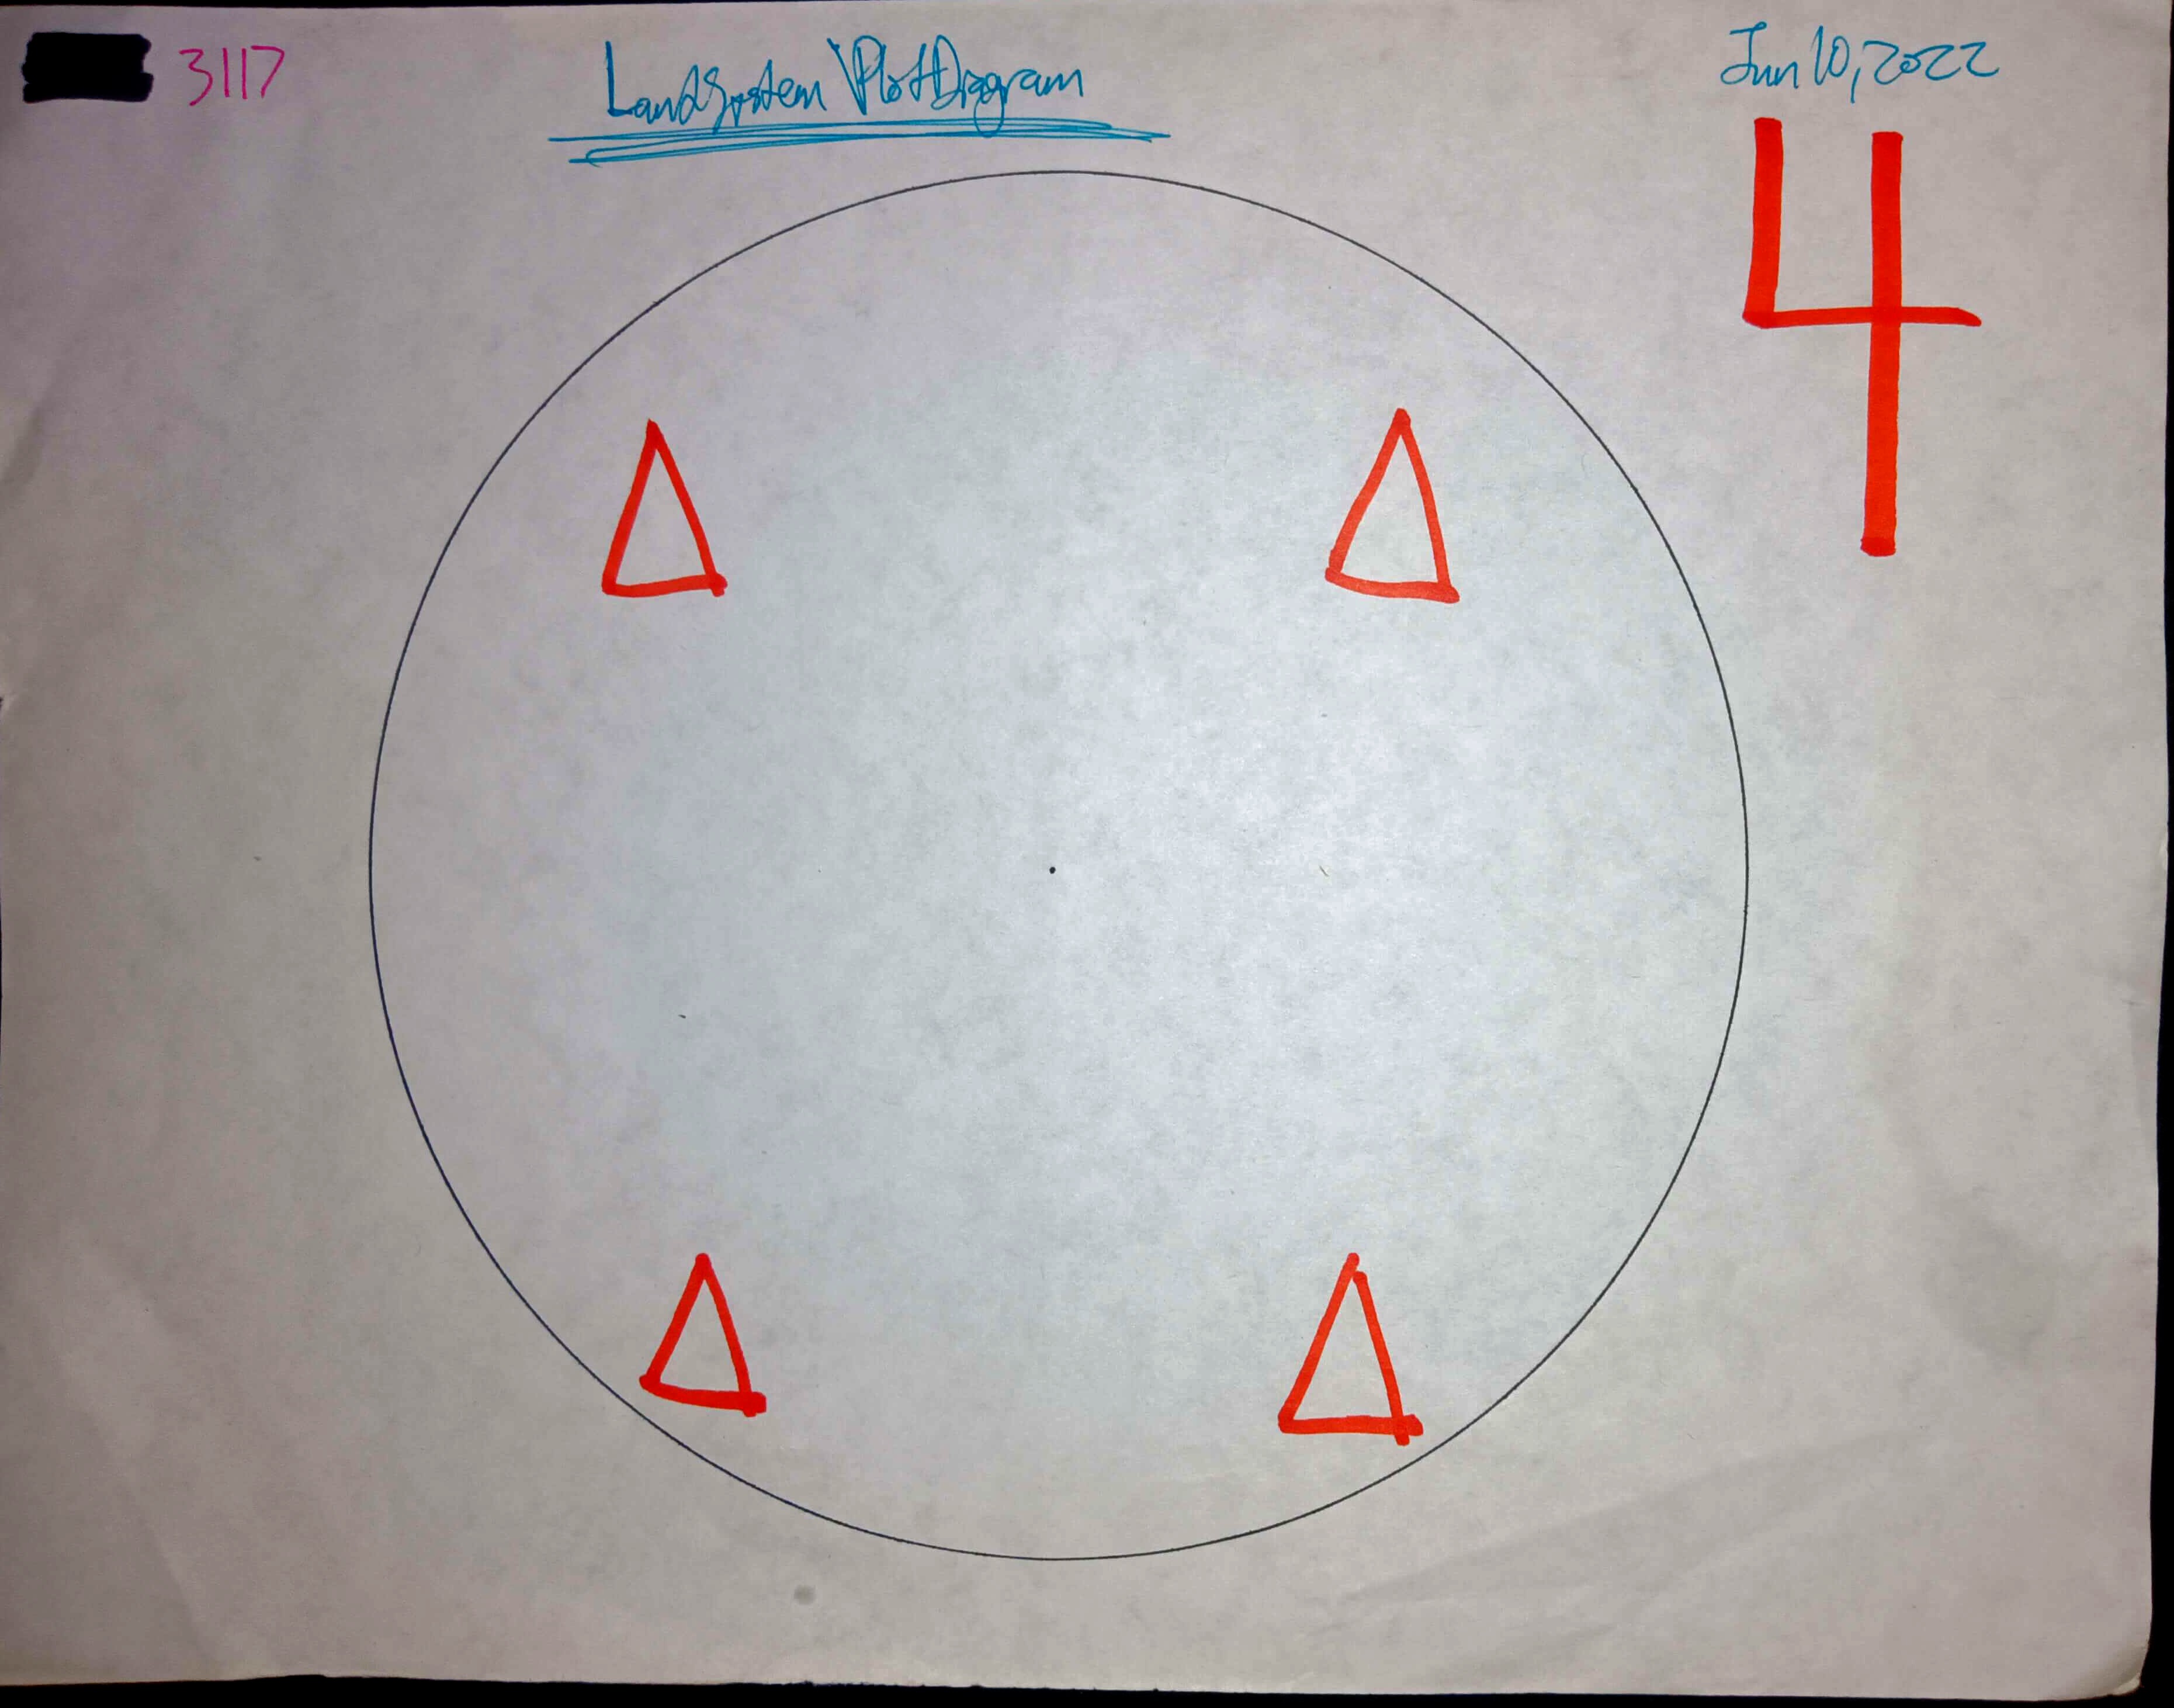 3117
Land System Plot Diagram
Jun 10, 2022
4